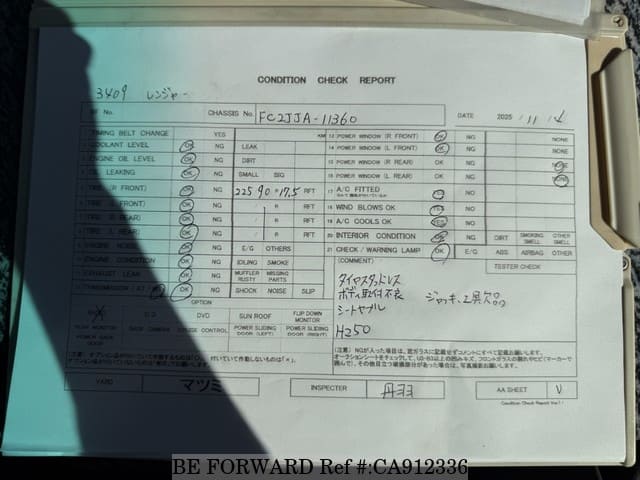 CONDITION CHECK REPORT
3409 レンジャー
RF No. CHASSIS No. FC2JJA-11360 DATE 2025 / 11 /
TIMING BELT CHANGE YES KM 13 POWER WINDOW (R FRONT) OK NG NONE
COOLANT LEVEL OK NG LEAK 14 POWER WINDOW (L FRONT) OK NG NONE
ENGINE OIL LEVEL OK NG DIRT 15 POWER WINDOW (R REAR) OK NG NONE
OIL LEAKING OK NG SMALL BIG 16 POWER WINDOW (L REAR) OK NG NONE
TIRE (R FRONT) OK NG 225 90 17.5 RFT 17 A/C FITTED YES NG
TIRE (L FRONT) OK NG R RFT 18 WIND BLOWS OK YES NG
TIRE (R REAR) OK NG R RFT 19 A/C COOLS OK YES NG
TIRE (L REAR) OK NG R RFT 20 INTERIOR CONDITION OK NG DIRT SMOKING SMELL OTHER SMELL
ENGINE NOISE OK NG E/G OTHERS 21 CHECK / WARNING LAMP OK E/G ABS AIRBAG OTHER
ENGINE CONDITION OK NG IDLING SMOKE (COMMENT) TESTER CHECK
EXHAUST LEAK OK NG MUFFLER RUSTY MISSING PARTS
TRANSMISSION (AT / M) OK NG SHOCK NOISE SLIP
タイヤスタッドレス
ボディ取付不良 ジャッキ、工具欠品
シートヤブレ
H250
OPTION
BACK CAMERA DVD CRUISE CONTROL SUN ROOF POWER SLIDING DOOR (LEFT) FLIP DOWN MONITOR POWER SLIDING DOOR (RIGHT)
REAR MONITOR POWER BACK DOOR
YARD マツミ INSPECTER 丹羽 AA SHEET V
Condition Check Report Ver.1.1
BE FORWARD Ref #:CA912336